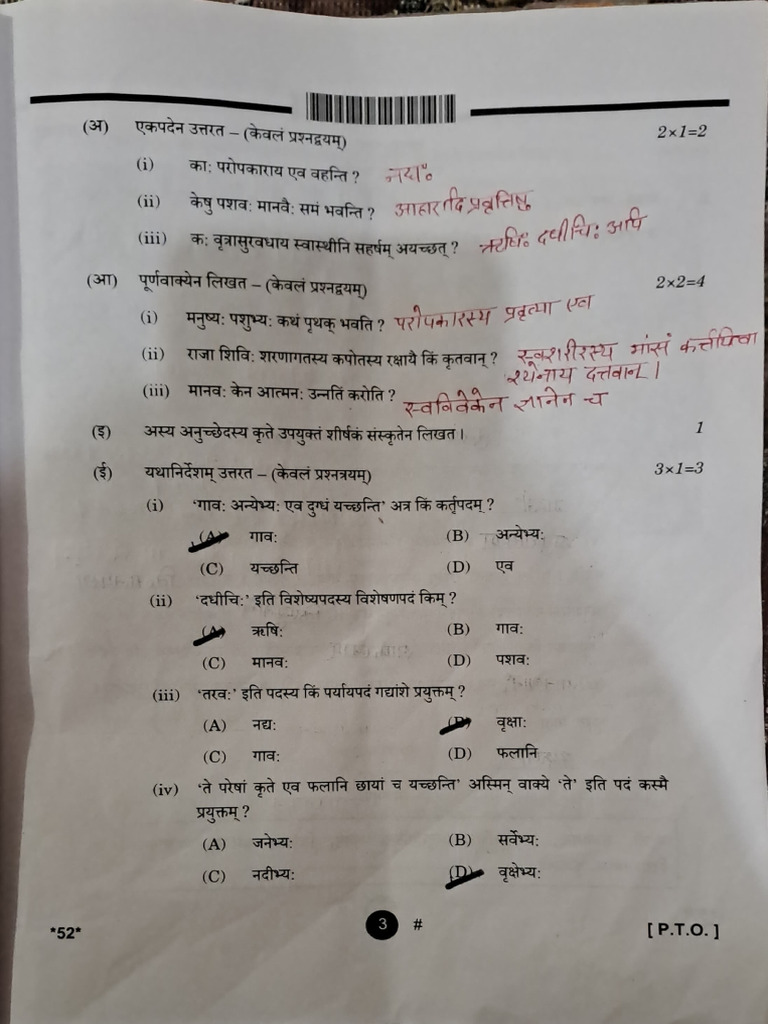 (अ) एकपदेन उत्तरत – (केवलं प्रश्नद्वयम्) 2×1=2
(i) का: परोपकाराय एव वहन्ति ? नद्य:
(ii) केषु पशव: मानवै: समं भवन्ति ? आहारादि प्रवृत्तिषु
(iii) क: वृत्रासुरवधाय स्वास्थीनि सहर्षम् अयच्छत् ? ऋषि: दधीचि: अपि
(आ) पूर्णवाक्येन लिखत – (केवलं प्रश्नद्वयम्) 2×2=4
(i) मनुष्य: पशुभ्य: कथं पृथक् भवति ? परोपकारस्य प्रवृत्या एव
(ii) राजा शिवि: शरणागतस्य कपोतस्य रक्षायै किं कृतवान् ? स्वशरीरस्य मांसं कर्त्तयित्वा
श्येनाय दत्तवान् ।
(iii) मानव: केन आत्मन: उन्नतिं करोति ? स्वविवेकेन ज्ञानेन च
(इ) अस्य अनुच्छेदस्य कृते उपयुक्तं शीर्षकं संस्कृतेन लिखत । 1
(ई) यथानिर्देशम् उत्तरत – (केवलं प्रश्नत्रयम्) 3×1=3
(i) 'गाव: अन्येभ्य: एव दुग्धं यच्छन्ति' अत्र किं कर्तृपदम् ?
(A) गाव: (B) अन्येभ्य:
(C) यच्छन्ति (D) एव
(ii) 'दधीचि:' इति विशेष्यपदस्य विशेषणपदं किम् ?
(A) ऋषि: (B) गाव:
(C) मानव: (D) पशव:
(iii) 'तरव:' इति पदस्य किं पर्यायपदं गद्यांशे प्रयुक्तम् ?
(A) नद्य: (B) वृक्षा:
(C) गाव: (D) फलानि
(iv) 'ते परेषां कृते एव फलानि छायां च यच्छन्ति' अस्मिन् वाक्ये 'ते' इति पदं कस्मै
प्रयुक्तम् ?
(A) जनेभ्य: (B) सर्वेभ्य:
(C) नदीभ्य: (D) वृक्षेभ्य:
*52* 3 # [ P.T.O. ]